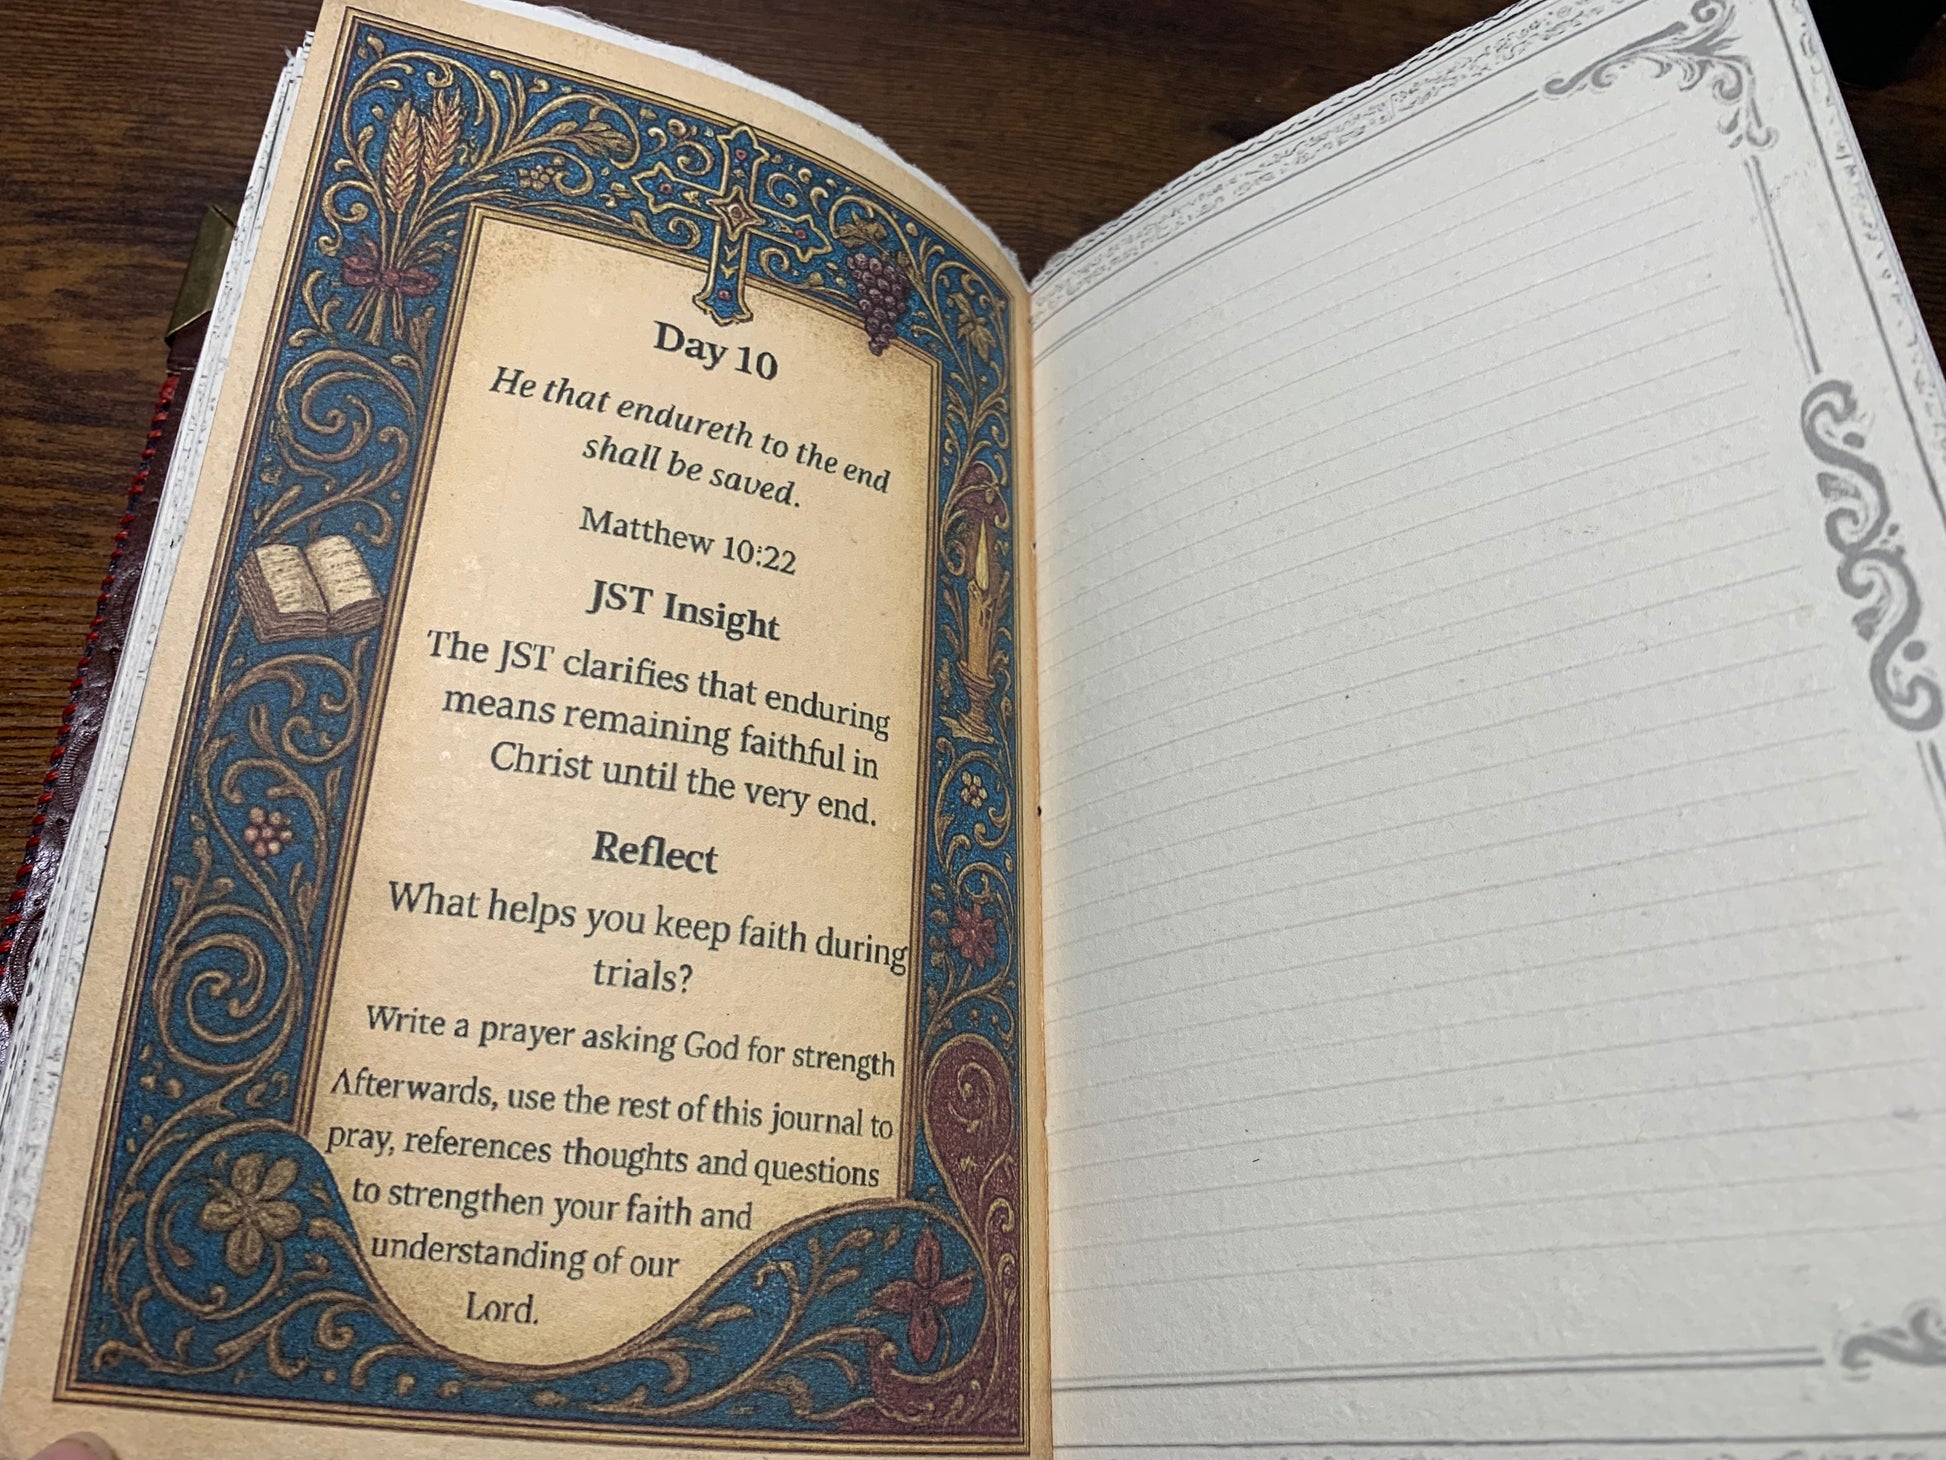 Day 10
He that endureth to the end
shall be saved.
Matthew 10:22
JST Insight
The JST clarifies that enduring
means remaining faithful in
Christ until the very end.
Reflect
What helps you keep faith during
trials?
Write a prayer asking God for strength
Afterwards, use the rest of this journal to
pray, references thoughts and questions
to strengthen your faith and
understanding of our
Lord.